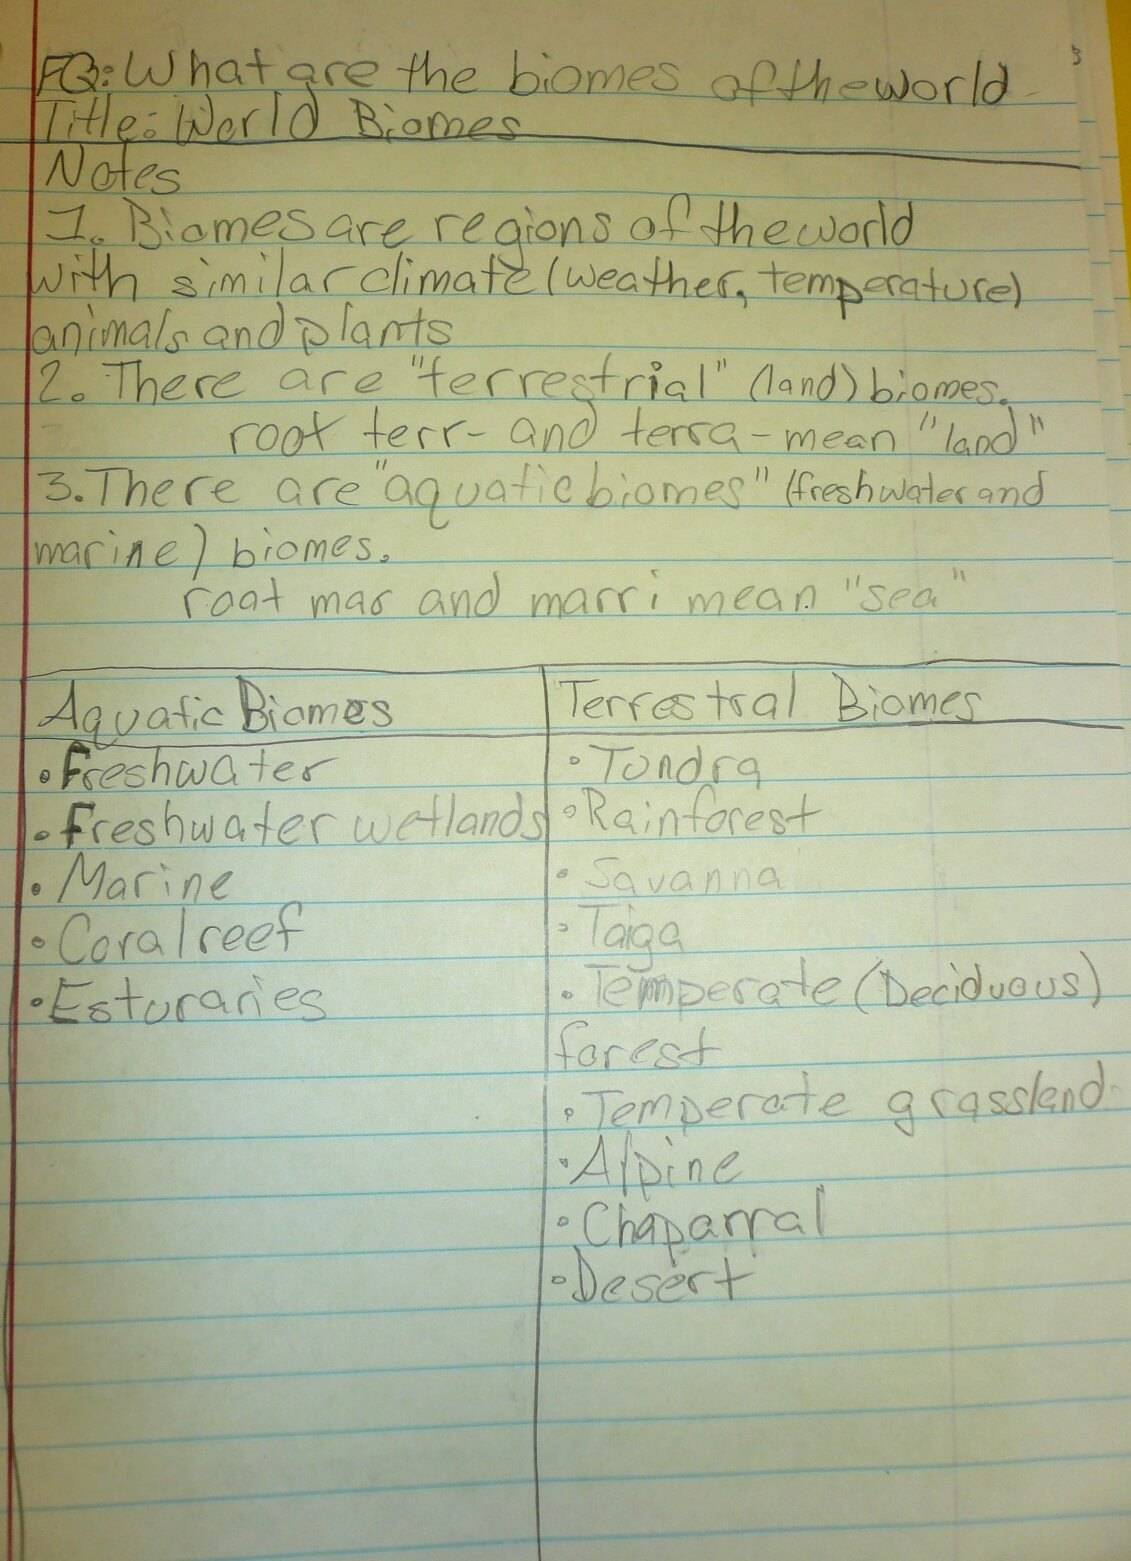 FQ: What are the biomes of the world
3
Title: World Biomes
Notes
1. Biomes are regions of the world
with similar climate (weather, temperature)
animals and plants
2. There are "terrestrial" (land) biomes.
root terr- and terra- mean "land"
3. There are "aquatic biomes" (freshwater and
marine) biomes.
root mar and marri mean "sea"
Aquatic Biomes
• Freshwater
• Freshwater wetlands
• Marine
• Coral reef
• Esturaries
Terrestral Biomes
• Tundra
• Rainforest
• Savanna
• Taiga
• Temperate (Deciduous)
forest
• Temperate grassland
• Alpine
• Chaparral
• Desert